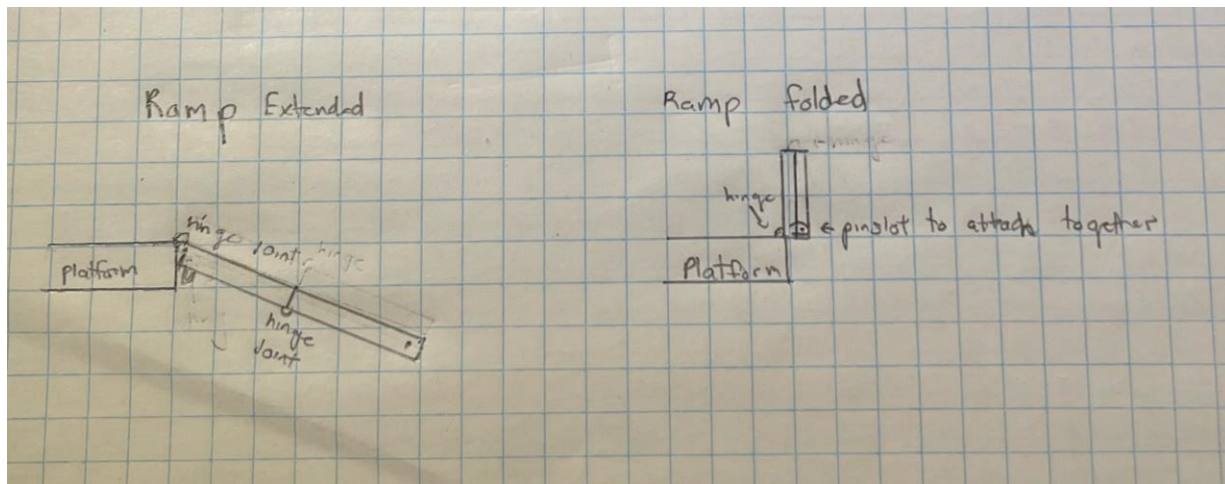 Ramp Extended
hinge
Joint
hinge
Platform
hinge
Joint
Ramp folded
hinge
hinge
← pinslot to attach together
Platform